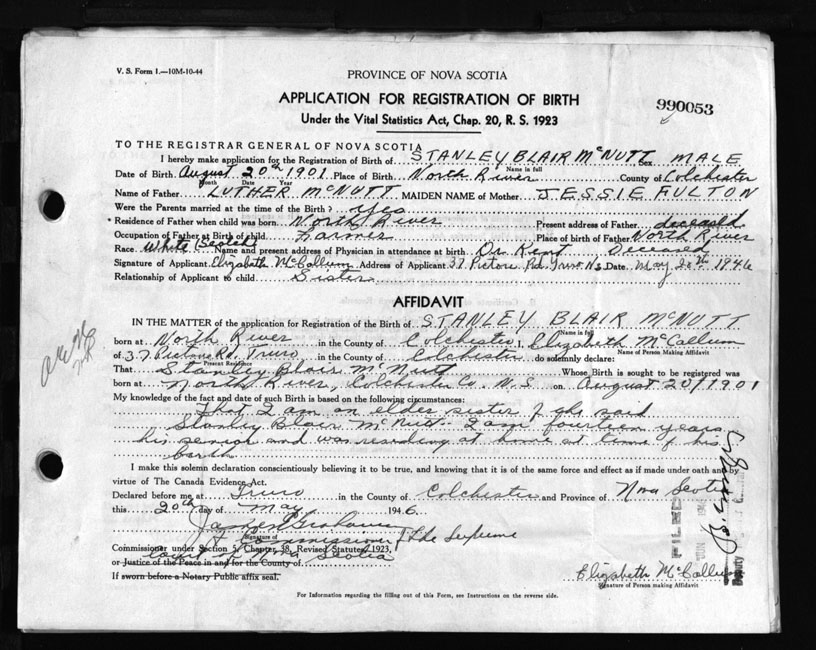 V. S. Form 1.—10M-10-44
PROVINCE OF NOVA SCOTIA
APPLICATION FOR REGISTRATION OF BIRTH
990053
Under the Vital Statistics Act, Chap. 20, R. S. 1923
TO THE REGISTRAR GENERAL OF NOVA SCOTIA
I hereby make application for the Registration of Birth of STANLEY BLAIR McNUTT Sex MALE
Name in full
Date of Birth August 20th 1901 Place of Birth North River County of Colchester
Month Date Year
Name of Father LUTHER McNUTT MAIDEN NAME of Mother JESSIE FULTON
Were the Parents married at the time of the Birth? yes
* Residence of Father when child was born North River Present address of Father deceased
Occupation of Father at Birth of child Farmer Place of birth of Father North River
Race White (Scotch) Name and present address of Physician in attendance at birth Dr. Kent Deceased
Signature of Applicant Elizabeth McCallum Address of Applicant 37 Pictou Rd. Truro N.S. Date May 20th 1946
Relationship of Applicant to child Sister
AFFIDAVIT
IN THE MATTER of the application for Registration of the Birth of STANLEY BLAIR McNUTT
(Name in full)
born at North River in the County of Colchester I, Elizabeth McCallum
Name of Person Making Affidavit
of 37 Pictou Rd, Truro in the County of Colchester do solemnly declare:
Present Residence
That Stanley Blair McNutt Whose Birth is sought to be registered was
born at North River, Colchester Co. N.S. on August 20/1901
My knowledge of the fact and date of such Birth is based on the following circumstances:
That I am an elder sister of the said
Stanley Blair McNutt - I am fourteen years
his senior and was residing at home at time of his
birth
I make this solemn declaration conscientiously believing it to be true, and knowing that it is of the same force and effect as if made under oath and by
virtue of The Canada Evidence Act.
Declared before me at Truro in the County of Colchester and Province of Nova Scotia
this 20th day of May 1946
Signature of
A Commissioner of the Supreme
Commissioner under Section 5, Chapter 38, Revised Statutes 1923,
Court of Nova Scotia
or Justice of the Peace in and for the County of
If sworn before a Notary Public affix seal.
Elizabeth McCallum
Signature of Person making Affidavit
For Information regarding the filling out of this Form, see Instructions on the reverse side.
FILED
JUN 1946
Deputy